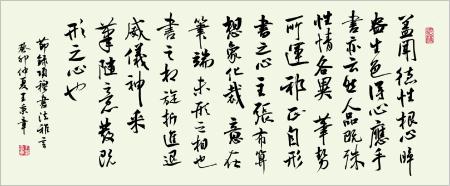 蓋闻德性根心睟
盎生色得心應手
書亦云然人品既殊
性情各異筆勢
所運邪正自形
書之心主張布算
想象化裁意在
筆端未形之相也
書之相旋折進退
威儀神采
筆隨意發既
形之心也
節錄項穆書法雅言
癸卯仲夏王